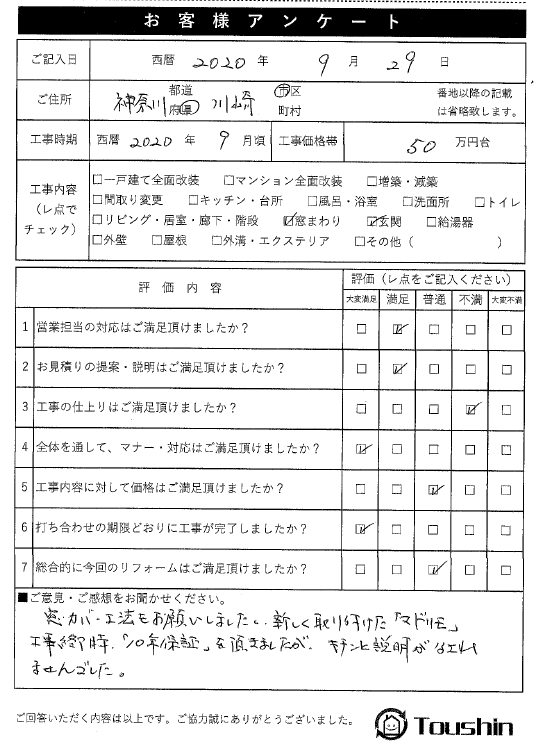 お客様アンケート
ご記入日 西暦 2020 年 9 月 29 日
ご住所 神奈川 都道府県 川崎 市区町村 番地以降の記載は省略致します。
工事時期 西暦 2020 年 9 月頃 工事価格帯 50 万円台
工事内容（レ点でチェック）
□一戸建て全面改装 □マンション全面改装 □増築・減築
□間取り変更 □キッチン・台所 □風呂・浴室 □洗面所 □トイレ
□リビング・居室・廊下・階段 ☑窓まわり ☑玄関 □給湯器
□外壁 □屋根 □外溝・エクステリア □その他（ ）
評価内容 評価（レ点をご記入ください）
大変満足 満足 普通 不満 大変不満
1 営業担当の対応はご満足頂けましたか？ □ ☑ □ □ □
2 お見積りの提案・説明はご満足頂けましたか？ □ ☑ □ □ □
3 工事の仕上りはご満足頂けましたか？ □ □ □ ☑ □
4 全体を通して、マナー・対応はご満足頂けましたか？ ☑ □ □ □ □
5 工事内容に対して価格はご満足頂けましたか？ □ □ ☑ □ □
6 打ち合わせの期限どおりに工事が完了しましたか？ ☑ □ □ □ □
7 総合的に今回のリフォームはご満足頂けましたか？ □ □ ☑ □ □
■ご意見・ご感想をお聞かせください。
窓・カバー工法をお願いしました。新しく取り付けた「マドリモ」
工事終了時、「10年保証」を頂きましたが、キチンと説明がなされ
ませんでした。
ご回答いただく内容は以上です。ご協力誠にありがとうございました。
Toushin